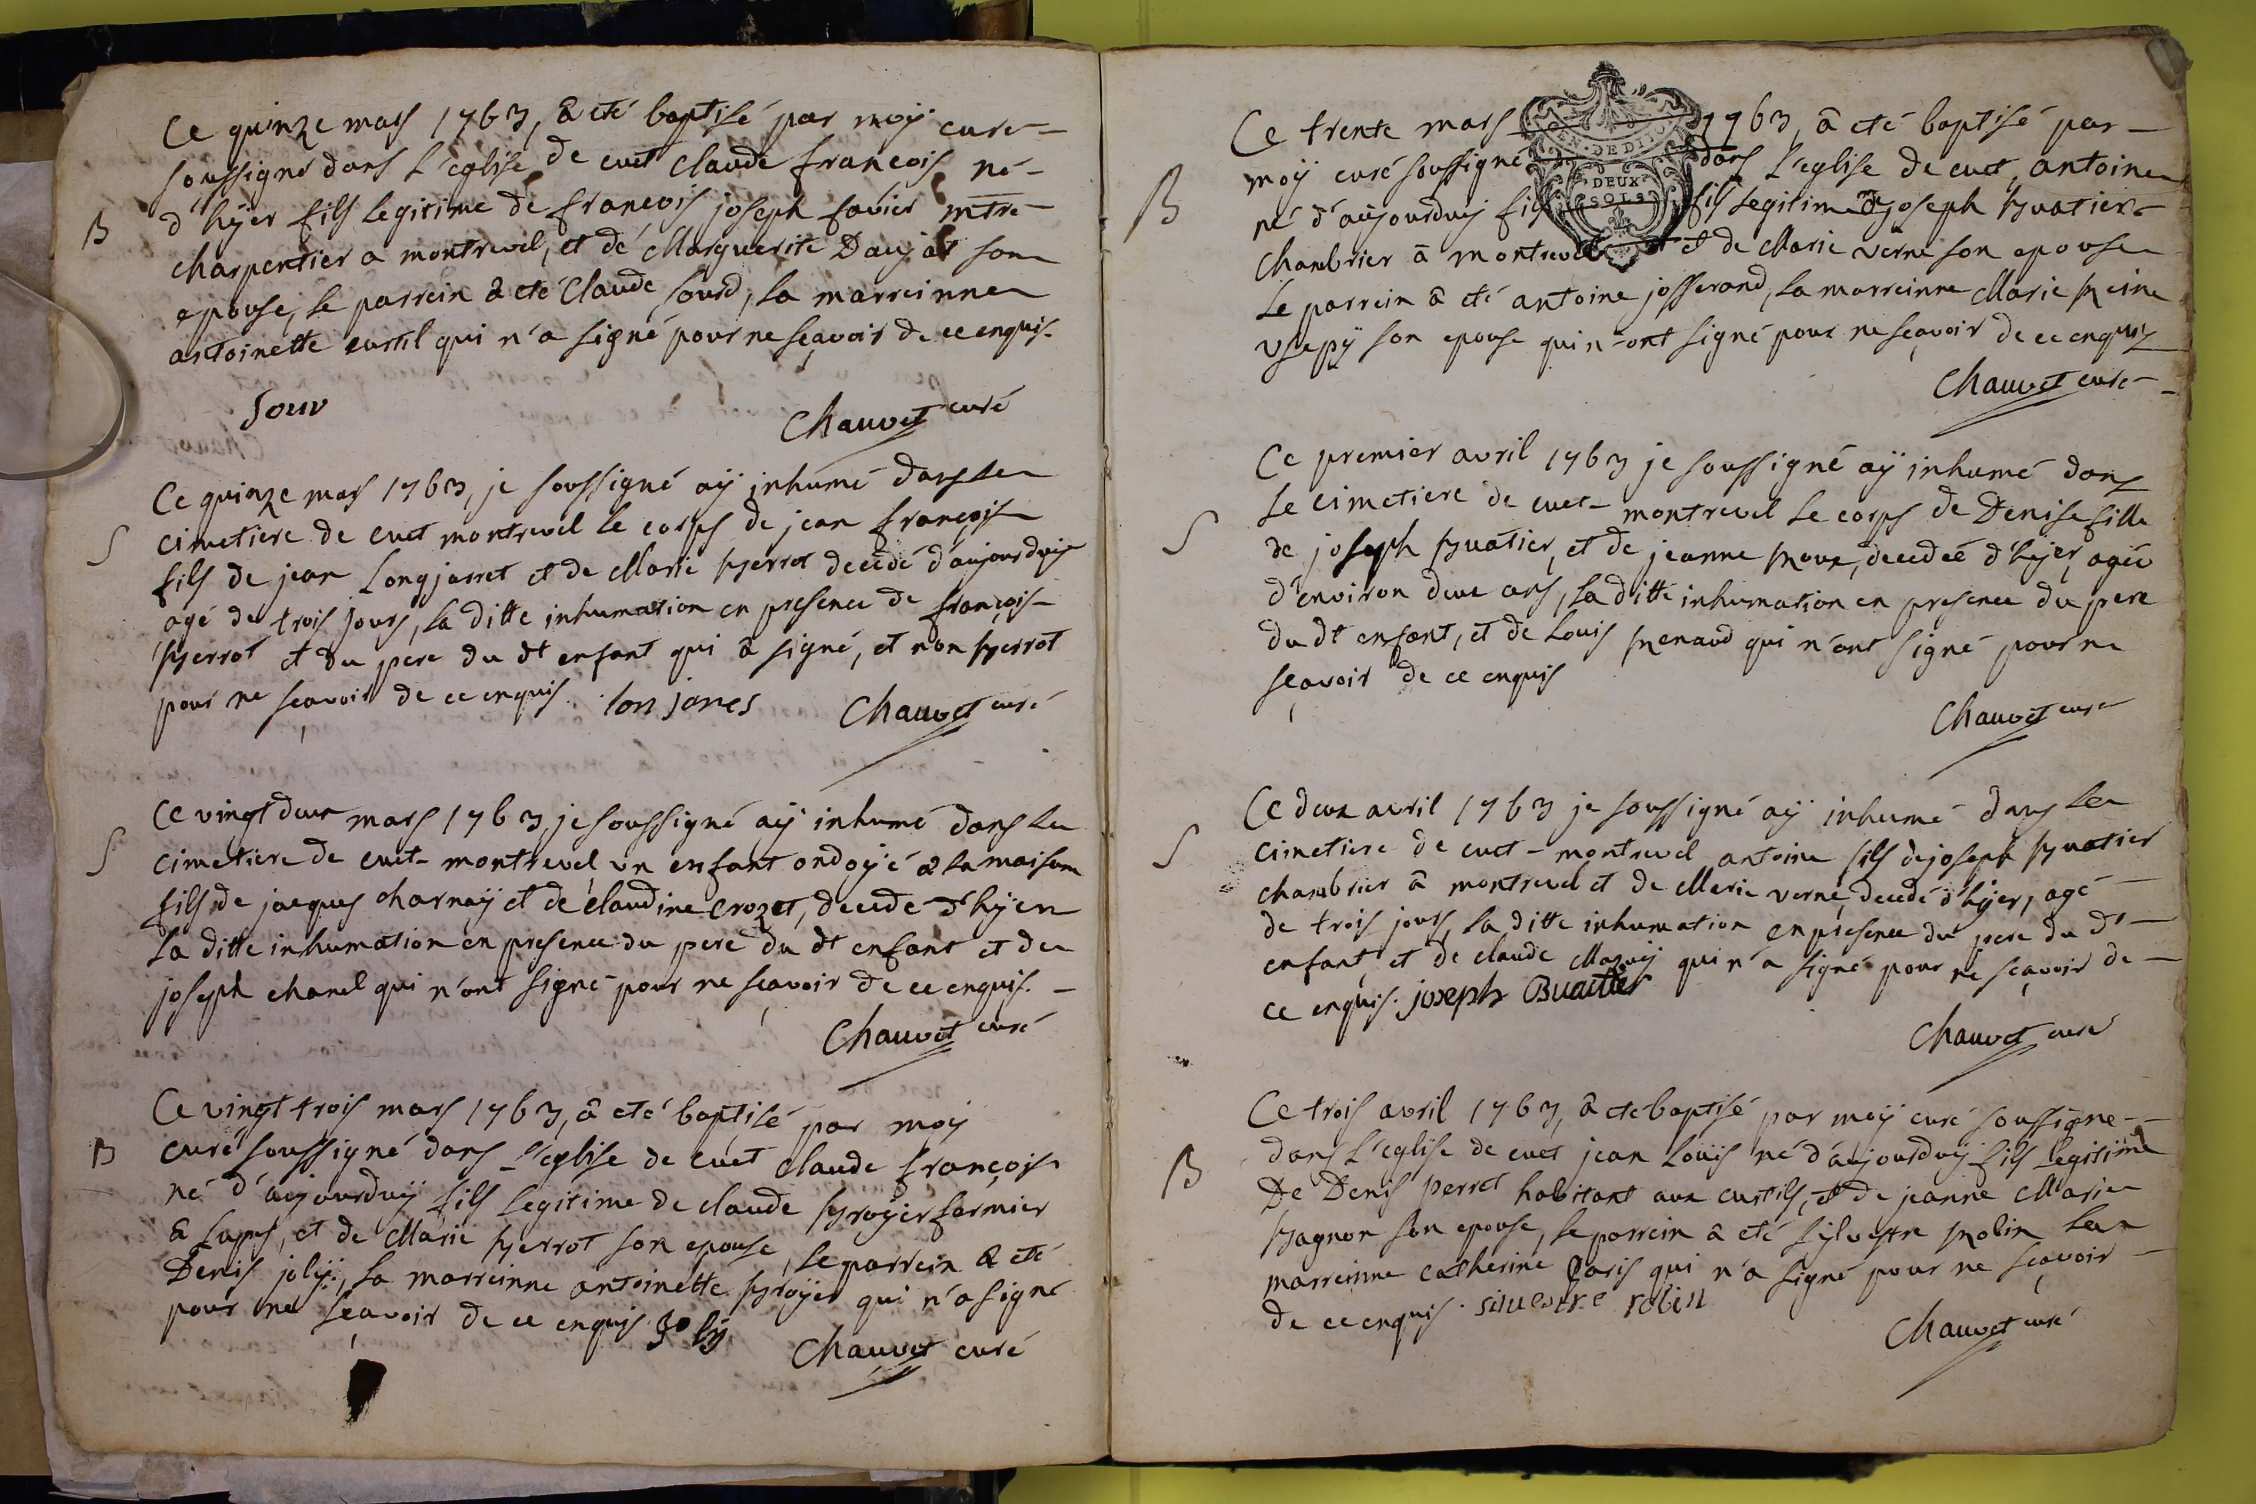 Ce quinze mars 1763, â eté baptisé par moÿ curé
soussigné dans l'eglise de cuet claude françois né
d'hÿer fils legitime de françois joseph favier mtre
charpentier a montrevel, et de Marguerite Daujat son
epouse, le parrein â eté Claude sourd, la marreinne
antoinette curtil qui n'a signé pour ne sçavoir de ce enquis.
Chauvet curé
B
Ce quinze mars 1763, je soussigné aÿ inhumé dans le
cimetiere de cuet montrevel le corps de jean françois
fils de jean Longjarret et de Marie perrot decedé d'aujourdhuÿ
agé de trois jours, la ditte inhumation en presence de françois
perrot et du pere du dt enfant qui â signé, et non perrot
pour ne sçavoir de ce enquis. lonjares
Chauvet curé
S
Ce vingt deux mars 1763, je soussigné aÿ inhumé dans le
cimetiere de cuet-montrevel un enfant ondoÿé a la maison
fils de jacques charnaÿ et de claudine crozet, decedé d'hÿer
la ditte inhumation en presence du pere du dt enfant et de
joseph chanel qui n'ont signé pour ne sçavoir de ce enquis.
Chauvet curé
S
Ce vingt trois mars 1763, â eté baptisé par moÿ
curé soussigné dans l'eglise de cuet claude françois
né d'aujourduÿ fils legitime de claude broÿer fermier
et de Marie perrot son epouse, le parrein a eté
Denis jolÿ, la marreinne antoinette broÿer qui n'a signé
pour ne sçavoir de ce enquis. Joly
Chauvet curé
B
Ce trente mars 1763, â eté baptisé par
moÿ curé soussigné dans l'eglise de cuet, antoine
né d'aujourduÿ fils fils legitime de joseph buatier
chambrier â montrevel et de Marie verne son epouse
Le parrein â eté antoine josserand, la marreinne Marie
son epouse qui n'ont signé pour ne sçavoir de ce enquis
Chauvet curé
B
DEUX
SOLS
Ce premier avril 1763 je soussigné aÿ inhumé dans
le cimetiere de cuet-montrevel le corps de Denise fille
de joseph buatier, et de jeanne decedeé d'hÿer, ageé
d'environ deux ans, la ditte inhumation en presence du pere
du dt enfant, et de Louis renaud qui n'ont signé pour ne
sçavoir de ce enquis
Chauvet curé
S
Ce deux avril 1763 je soussigné aÿ inhumé dans le
cimetiere de cuet-montrevel antoine fils de joseph buatier
chambrier â montrevel et de Marie verne, decedé d'hÿer, agé
de trois jours, la ditte inhumation en presence du pere du dt
enfant, et de claude qui n'a signé pour ne sçavoir de
ce enquis. joseph Buattier
Chauvet curé
S
Ce trois avril 1763, â eté baptisé par moÿ curé soussigné
dans l'eglise de cuet jean Loüis né d'aujourduÿ fils legitime
De Denis perret habitant aux curtils, et de jeanne Marie
pagnon son epouse, le parrein â eté sÿlvestre robin la
marreinne catherine paris qui n'a signé pour ne sçavoir
de ce enquis. siluestre robin
Chauvet curé
B